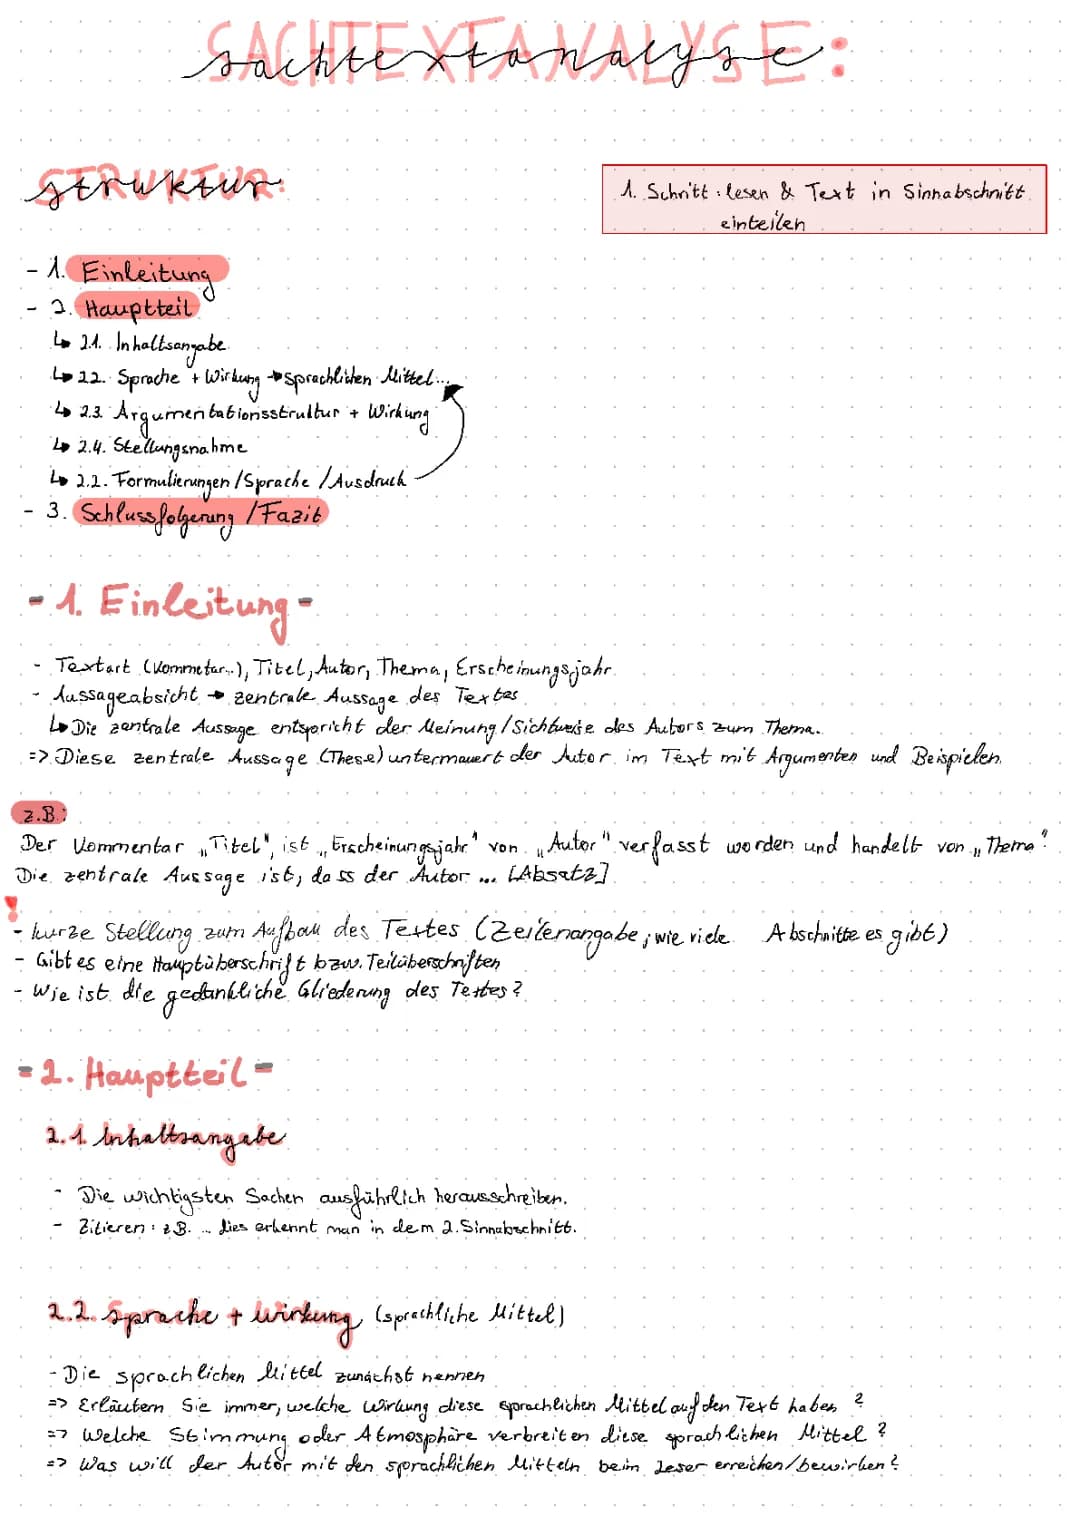 SACHTEXTANALYSE:
sachtextanalyse
STRUKTUR:
struktur
1. Schritt: lesen & Text in Sinnabschnitt
einteilen
- 1. Einleitung
- 2. Hauptteil
↳ 2.1. Inhaltsangabe
↳ 2.2. Sprache + Wirkung → sprachlichen Mittel...
↳ 2.3. Argumentationsstruktur + Wirkung
↳ 2.4. Stellungsnahme
↳ 2.2. Formulierungen/Sprache/Ausdruck
- 3. Schlussfolgerung/Fazit
- 1. Einleitung -
- Textart (Kommetar..), Titel, Autor, Thema, Erscheinungsjahr
- Aussageabsicht → zentrale Aussage des Textes
↳ Die zentrale Aussage entspricht der Meinung/Sichtweise des Autors zum Thema.
=> Diese zentrale Aussage (These) untermauert der Autor im Text mit Argumenten und Beispielen.
z.B.:
Der Kommentar „Titel", ist „Erscheinungsjahr" von „Autor" verfasst worden und handelt von „Thema".
Die zentrale Aussage ist, dass der Autor ... [Absatz]
!
- kurze Stellung zum Aufbau des Textes (Zeilenangabe, wie viele Abschnitte es gibt)
- Gibt es eine Hauptüberschrift bzw. Teilüberschriften
- Wie ist die gedankliche Gliederung des Textes?
- 2. Hauptteil -
2.1. Inhaltsangabe
- Die wichtigsten Sachen ausführlich herausschreiben.
- Zitieren: z.B. ... dies erkennt man in dem 2. Sinnabschnitt.
2.2. Sprache + Wirkung (sprachliche Mittel)
- Die sprachlichen Mittel zunächst nennen
=> Erläutern Sie immer, welche Wirkung diese sprachlichen Mittel auf den Text haben?
=> Welche Stimmung oder Atmosphäre verbreiten diese sprachlichen Mittel?
=> Was will der Autor mit den sprachlichen Mitteln beim Leser erreichen/bewirken?